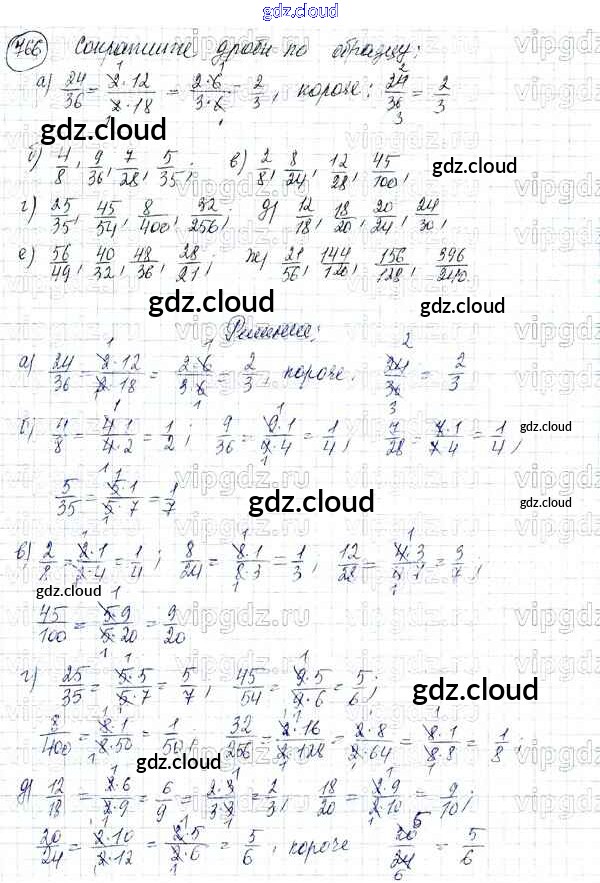 gdz.cloud
766 Сократите дроби по образцу:
а) 24/36 = 2·12/2·18 = 2·6/3·6 = 2/3, короче: 24/36 = 2/3
gdz.cloud
б) 4/8, 9/36, 7/28, 5/35; в) 2/8, 8/24, 12/28, 45/100, gdz.cloud
г) 25/35, 45/54, 8/400, 32/256, д) 12/18, 18/20, 20/24, 24/30,
е) 56/49, 40/32, 48/36, 28/21; ж) 21/56, 144/120, 156/128, 396/240.
gdz.cloud
Решение:
а) 24/36 = 2·12/2·18 = 2·6/3·6 = 2/3, короче. 24/36 = 2/3.
б) 4/8 = 4·1/4·2 = 1/2; 9/36 = 9·1/9·4 = 1/4, 7/28 = 7·1/7·4 = 1/4, gdz.cloud
5/35 = 5·1/5·7 = 1/7 gdz.cloud gdz.cloud
в) 2/8 = 2·1/2·4 = 1/4; 8/24 = 8·1/8·3 = 1/3; 12/28 = 4·3/4·7 = 3/7,
gdz.cloud
45/100 = 5·9/5·20 = 9/20
г) 25/35 = 5·5/5·7 = 5/7, 45/54 = 9·5/9·6 = 5/6; gdz.cloud
8/400 = 8·1/8·50 = 1/50, 32/256 = 2·16/2·128 = 2·8/2·64 = 8·1/8·8 = 1/8;
gdz.cloud
д) 12/18 = 2·6/2·9 = 6/9 = 2·3/3·3 = 2/3, 18/20 = 2·9/2·10 = 9/10;
20/24 = 2·10/2·12 = 2·5/2·6 = 5/6, короче 20/24 = 5/6